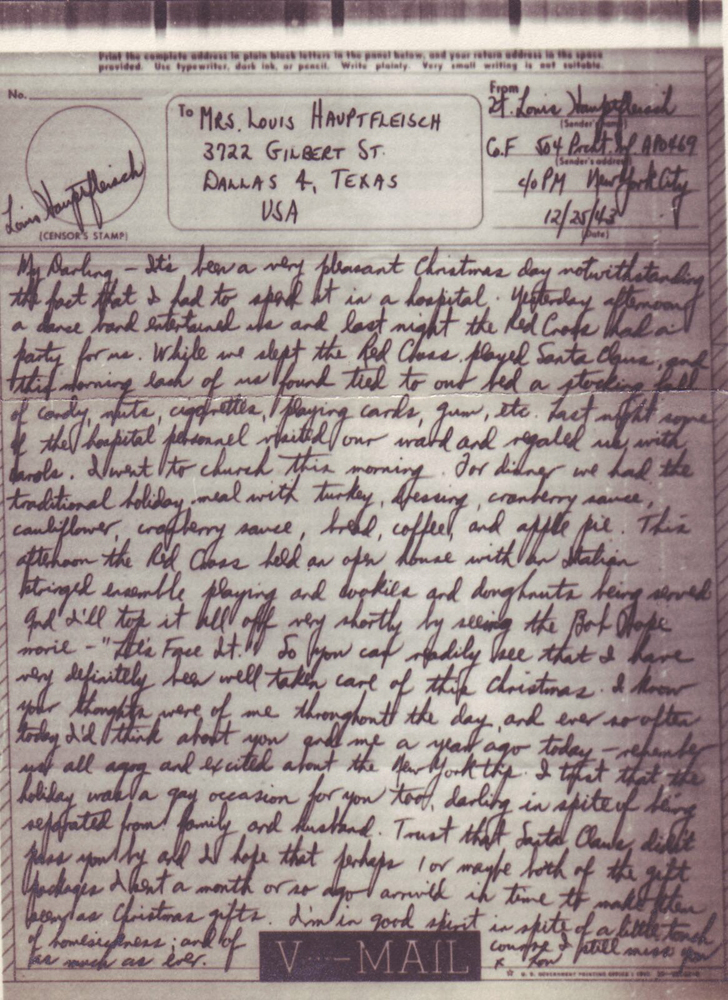 Print the complete address in plain block letters in the panel below, and your return address in the space
provided. Use typewriter, dark ink, or pencil. Write plainly. Very small writing is not suitable.
No.
To
MRS. LOUIS HAUPTFLEISCH
3722 GILBERT ST.
DALLAS 4, TEXAS
USA
From
Lt. Louis Hauptfleisch
(Sender's name)
Co.F 504 Prcht Inf APO469
(Sender's address)
c/o PM New York City
12/25/43
(Date)
Louis Hauptfleisch
(CENSOR'S STAMP)
My Darling – It's been a very pleasant Christmas day notwithstanding
the fact that I had to spend it in a hospital. Yesterday afternoon
a dance band entertained us and last night the Red Cross had a
party for us. While we slept the Red Cross played Santa Claus, and
this morning each of us found tied to our bed a stocking full
of candy, nuts, cigarettes, playing cards, gum, etc. Last night some
of the hospital personnel visited our ward and regaled us with
carols. I went to church this morning. For dinner we had the
traditional holiday meal with turkey, dressing, cranberry sauce,
cauliflower, cranberry sauce, bread, coffee, and apple pie. This
afternoon the Red Cross held an open house with an Italian
stringed ensemble playing and cookies and doughnuts being served
And I'll top it all off very shortly by seeing the Bob Hope
movie – "Let's Face It." So you can readily see that I have
very definitely been well taken care of this Christmas. I know
your thoughts were of me throughout the day, and ever so often
today I'd think about you and me a year ago today – remember
us all agog and excited about the New York trip. I trust that the
holiday was a gay occasion for you too, darling in spite of being
separated from family and husband. Trust that Santa Claus didn't
pass you by and I hope that perhaps 1 or maybe both of the gift
packages I sent a month or so ago arrived in time to make them
seem as Christmas gifts. I'm in good spirit in spite of a little touch
of homesickness; and of course I still miss you
as much as ever.
x Lou
V···—MAIL